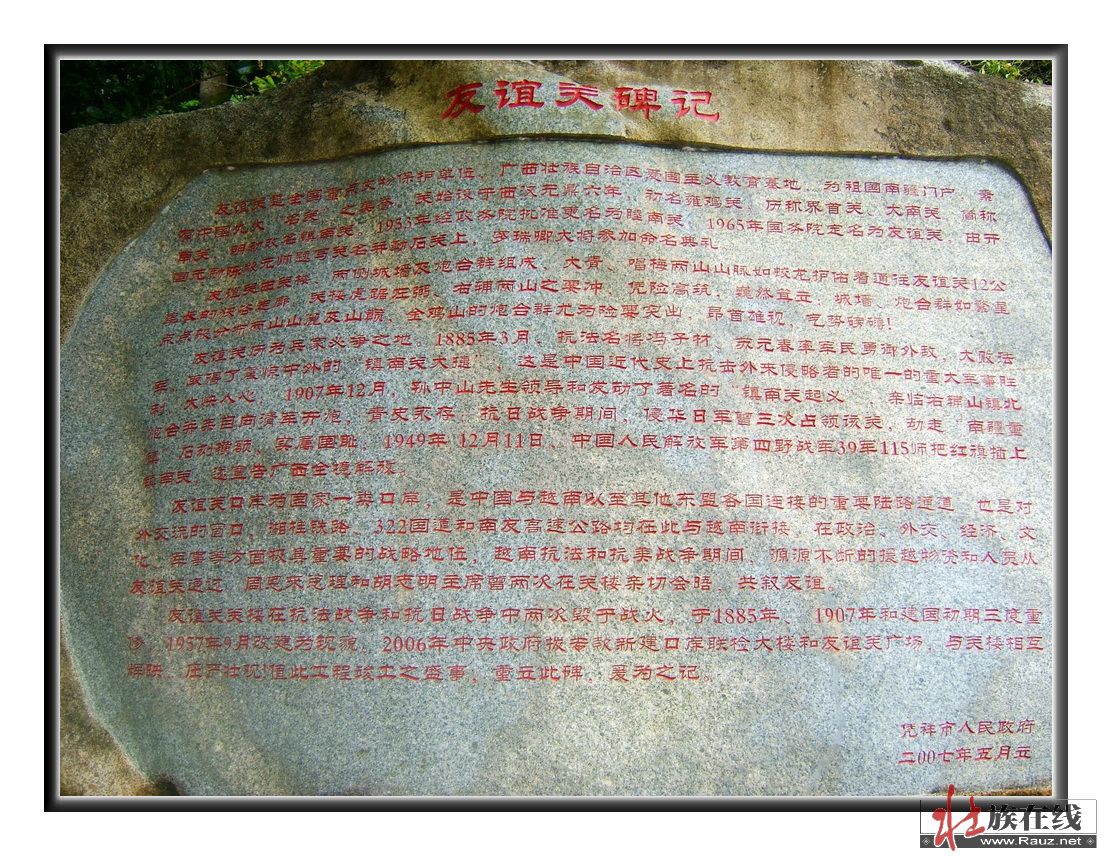 友谊关碑记
友谊关是全国重点文物保护单位、广西壮族自治区爱国主义教育基地，为祖国南疆门户，素
有中国九大 名关 之美誉。关始设于西汉元鼎六年，初名雍鸡关，历称界首关、大南关，简称
南关，明初改名镇南关，1953年经政务院批准更名为睦南关，1965年国务院定名为友谊关，由开
国元勋陈毅元帅题写关名并勒石关上，罗瑞卿大将参加命名典礼。
友谊关由关楼、两侧城墙及炮台群组成，大青、唱梅两山山脉如蛟龙护佑着通往友谊关12公
里长的峡谷走廊，关楼虎踞左弼、右辅两山之要冲，凭险高筑，巍然耸立，城墙、炮台群如繁星
点点散分布两山山麓及山巅，金鸡山的炮台群尤为险要突出，昂首雄视，气势磅礴！
友谊关历为兵家必争之地。1885年3月，抗法名将冯子材、苏元春率军民勇御外敌，大败法
军，取得了震惊中外的“镇南关大捷”，这是中国近代史上抗击外来侵略者的唯一的重大军事胜
利，大快人心。1907年12月，孙中山先生领导和发动了著名的“镇南关起义”，亲临右辅山镇北
炮台并亲自向清军开炮，青史永存。抗日战争期间，侵华日军曾三次占领该关，劫走“南疆重
镇”石刻横额，实属国耻。1949年12月11日，中国人民解放军第四野战军39军115师把红旗插上
镇南关，遂宣告广西全境解放。
友谊关口岸为国家一类口岸，是中国与越南以至其他东盟各国连接的重要陆路通道，也是对
外交流的窗口，湘桂铁路、322国道和南友高速公路均在此与越南衔接，在政治、外交、经济、文
化、军事等方面极具重要的战略地位，越南抗法和抗美战争期间，源源不断的援越物资和人员从
友谊关通过，周恩来总理和胡志明主席曾两次在关楼亲切会晤，共叙友谊。
友谊关关楼在抗法战争和抗日战争中两次毁于战火，于1885年、1907年和建国初期三度重
修，1957年9月改建为现貌，2006年中央政府拨专款新建口岸联检大楼和友谊关广场，与关楼相互
辉映，庄严壮观！值此工程竣立之盛事，重立此碑，爰为之记。
凭祥市人民政府
二00七年五月立
壮族在线
www.Rauz.net